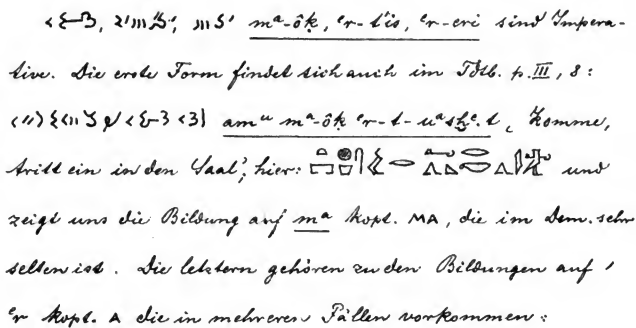 mᵃ-ôk̭, ᵉr-t'is, ᵉr-eri sind Impera-
tive. Die erste Form findet sich auch im Tdtb. p. III, 8:
amᵘ mᵃ-ôk̭ ᵉr-t-uᵃsḫᵉ.t „Komme,
tritt ein in den Saal“, hier: und
zeigt uns die Bildung auf mᵃ kopt. MA, die im Dem. sehr
selten ist. Die letztern gehören zu den Bildungen auf
ᵉr kopt. A die in mehreren Fällen vorkommen: